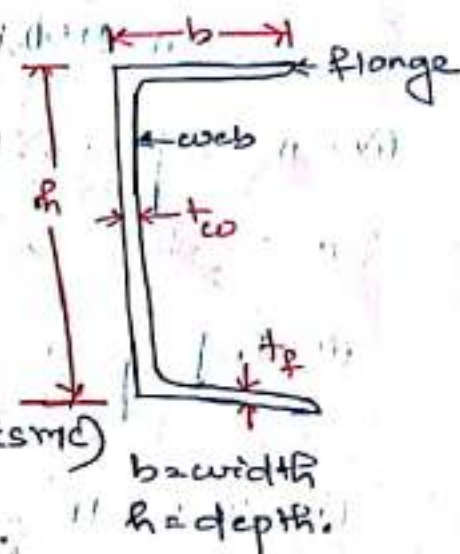 b
flange
web
h
tw
tf
b=width
h=depth.